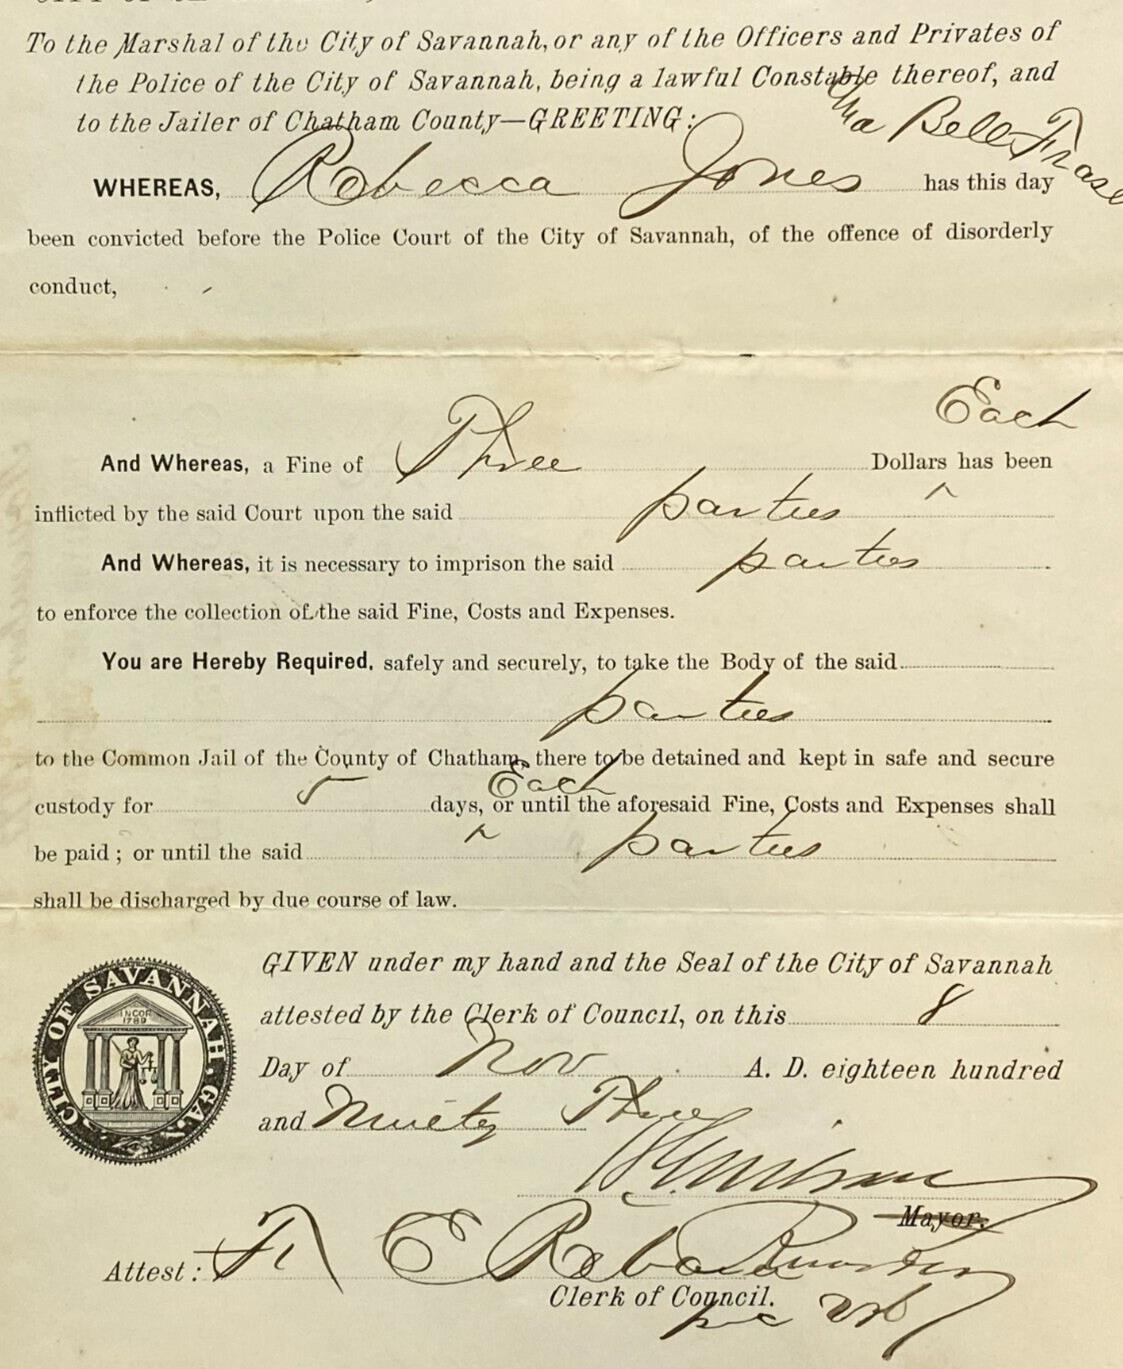 To the Marshal of the City of Savannah, or any of the Officers and Privates of
the Police of the City of Savannah, being a lawful Constable thereof, and
to the Jailer of Chatham County—GREETING:
Bell Fraser
WHEREAS, Rebecca Jones has this day
been convicted before the Police Court of the City of Savannah, of the offence of disorderly
conduct,
Each
And Whereas, a Fine of Three Dollars ^ has been
inflicted by the said Court upon the said parties
And Whereas, it is necessary to imprison the said parties
to enforce the collection of the said Fine, Costs and Expenses.
You are Hereby Required, safely and securely, to take the Body of the said
parties
to the Common Jail of the County of Chatham, there to be detained and kept in safe and secure
Each
custody for 5 days, ^ or until the aforesaid Fine, Costs and Expenses shall
be paid; or until the said parties
shall be discharged by due course of law.
CITY OF SAVANNAH, GA.
INCOR
1789
GIVEN under my hand and the Seal of the City of Savannah
attested by the Clerk of Council, on this 8
Day of Nov A. D. eighteen hundred
and Ninety Three
Mayor.
Attest: F E Rebarer
Clerk of Council.